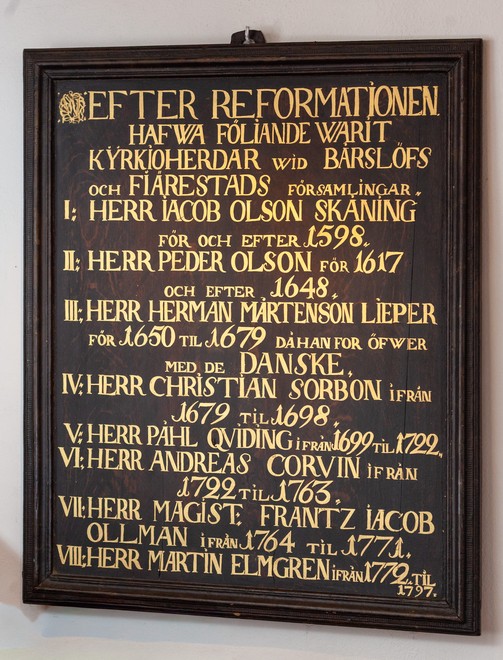 EFTER REFORMATIONEN.
HAFWA FÖLIANDE WARIT
KÝRKIOHERDAR WID BÅRSLÖFS
OCH FIÄRESTADS FÖRSAMLINGAR.
I; HERR IACOB OLSON SKÅNING
FÖR OCH EFTER 1598.
II; HERR PEDER OLSON FÖR 1617
OCH EFTER 1648.
III; HERR HERMAN MÅRTENSON LIEPER
FÖR 1650 TIL 1679 DÅ HAN FOR ÖFWER
MED DE DANSKE.
IV; HERR CHRISTIAN SORBON IFRÅN
1679 TIL 1698.
V; HERR PÅHL QVIDING IFRÅN 1699 TIL 1722.
VI; HERR ANDREAS CORVIN IFRÅN
1722 TIL 1763.
VII; HERR MAGIST: FRANTZ IACOB
OLLMAN IFRÅN 1764 TIL 1771.
VIII; HERR MARTIN ELMGREN IFRÅN 1772. TIL
1797.